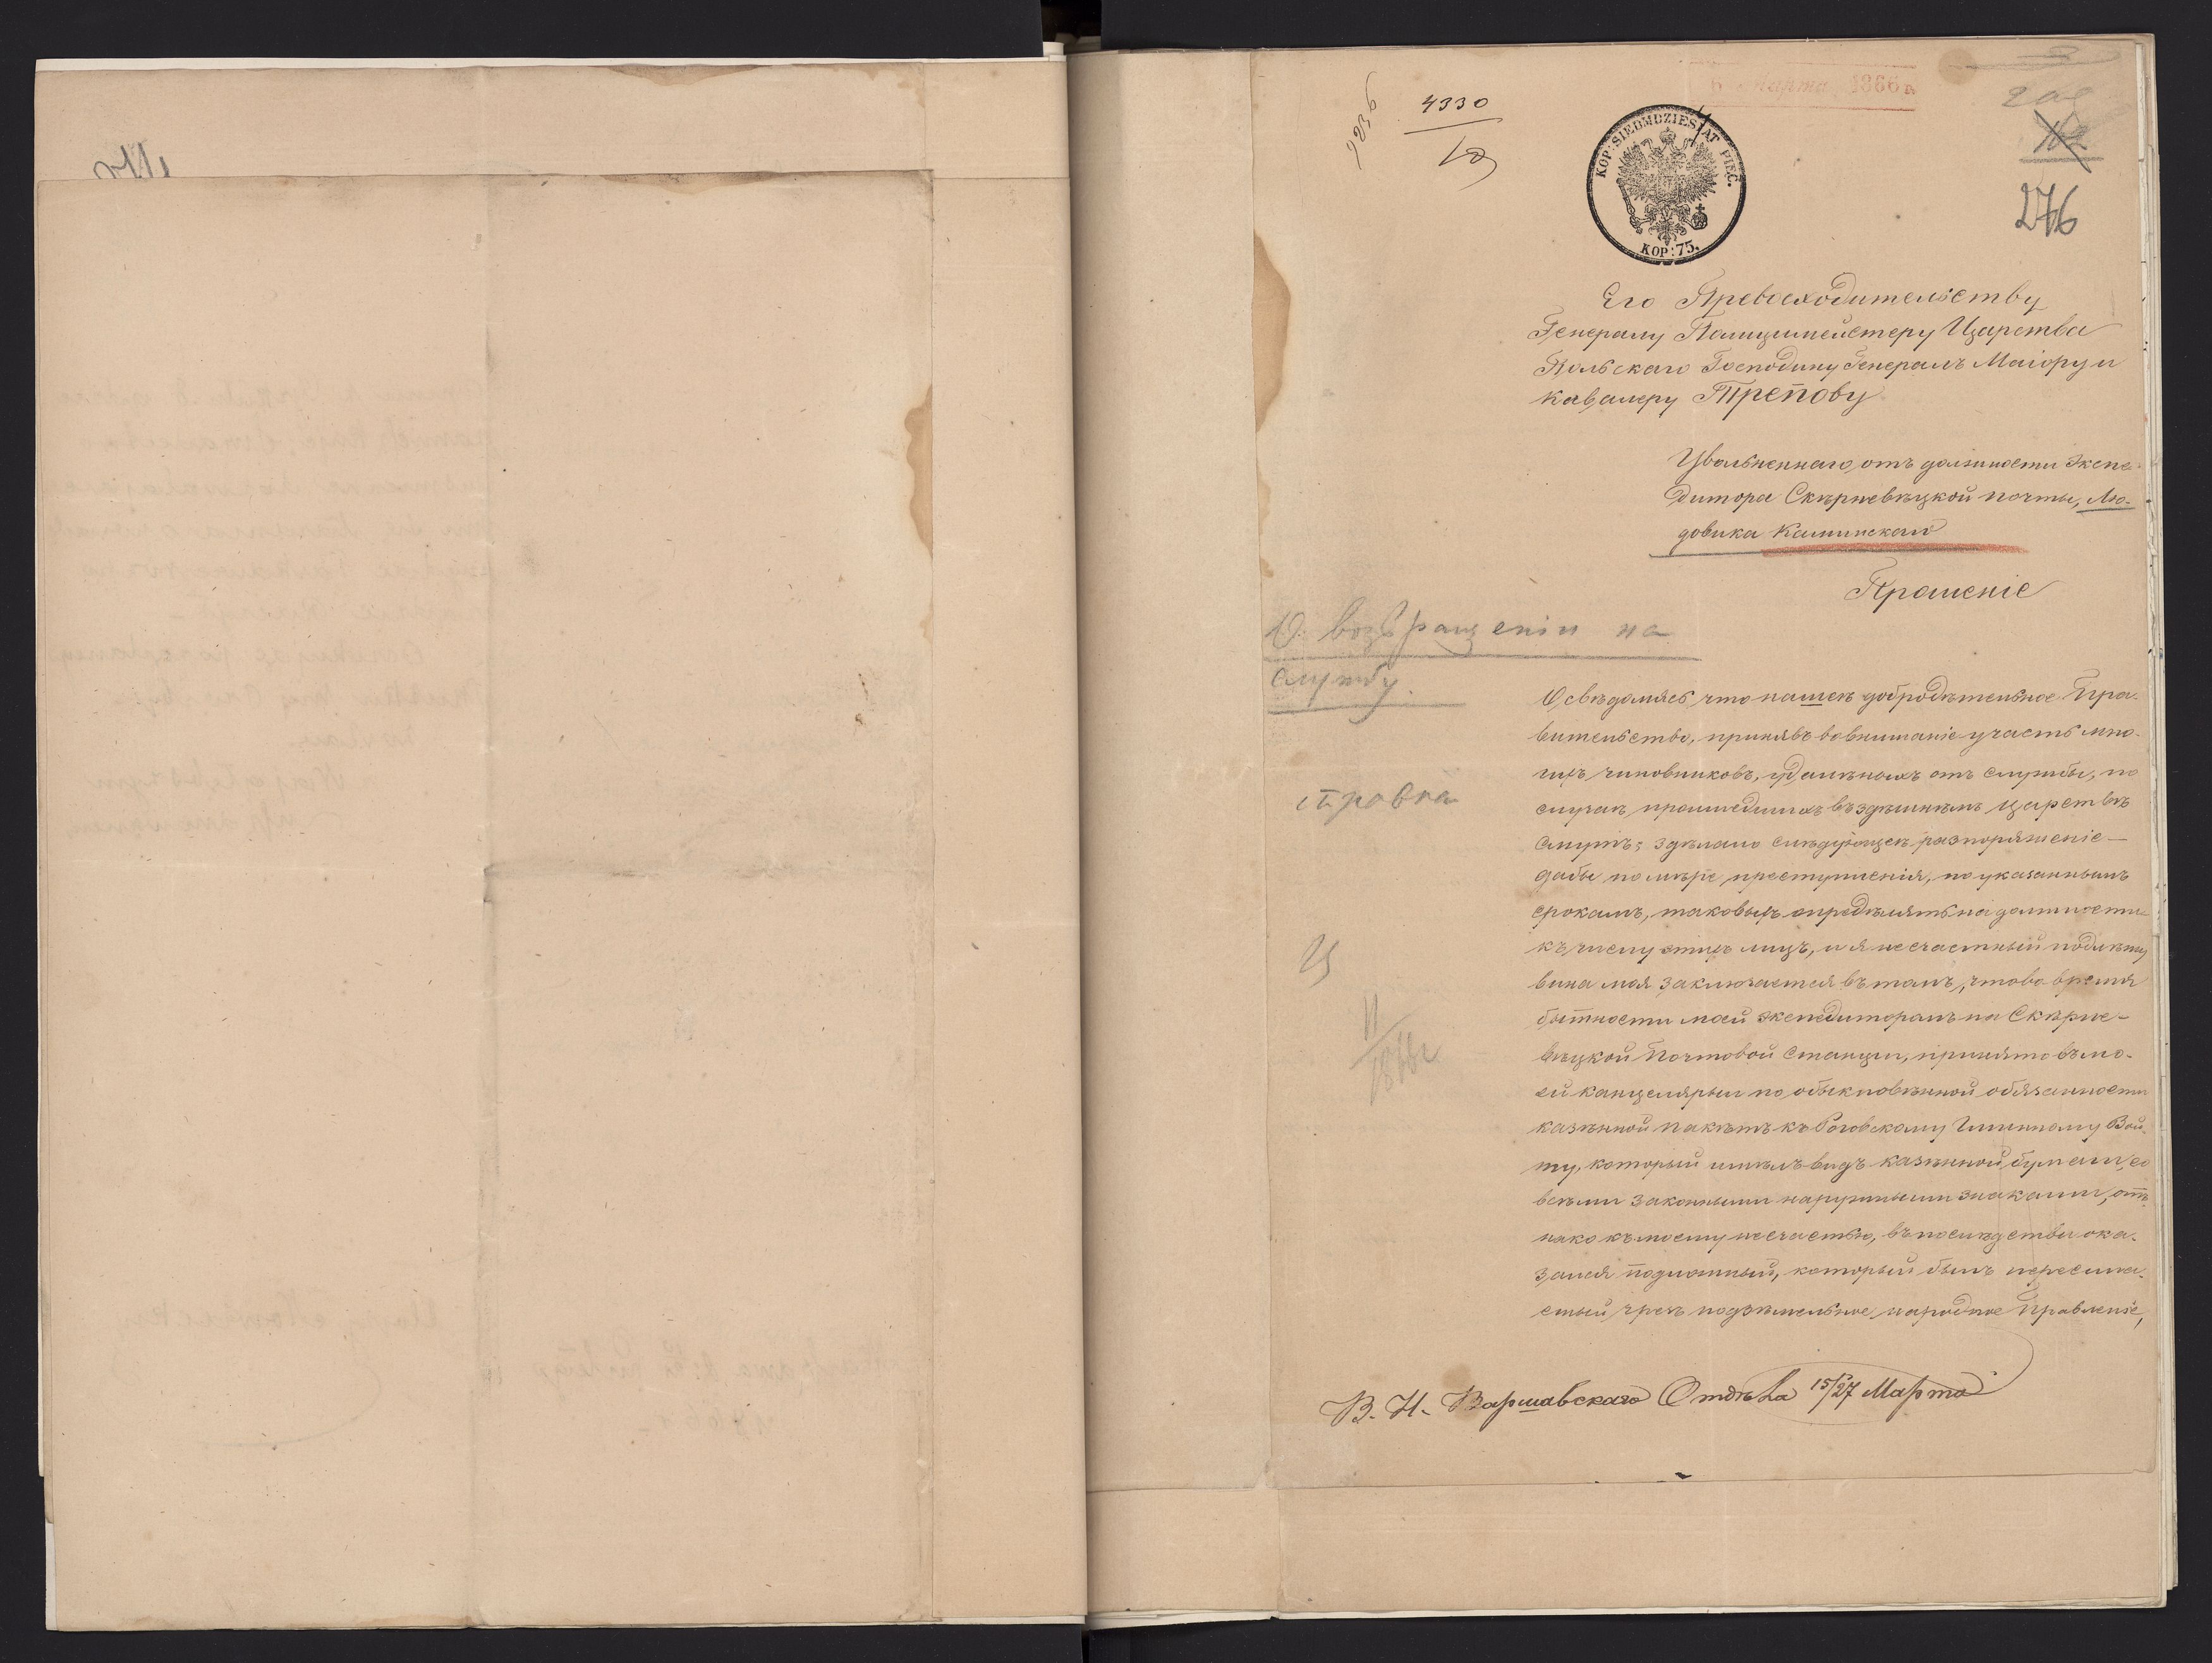 4330
10
6 Марта 1866 г.
KOP: SIEDMDZIESIĄT PIĘĆ.
KOP: 75.
276
Его Превосходительству
Генералу Полицимейстеру Царства
Польскаго Господину Генералъ Маіору и
Кавалеру Трепову
Увольненнаго отъ должности Экспе-
дитора Скѣрневѣцкой почты, Лю-
довика Каминскаго
Прошеніе
О возвращеніи на
службу.
справка
Освѣдомясь что нашеѣ добродѣтельное Пра-
вительство, принявъ вовниманіе участь мно-
гихъ чиновниковъ, удалѣныхъ отъ службы, по
случаѣ прошедшихъ въ здѣшнѣмъ Царствѣ
смутъ; здѣлало слѣдующеѣ разпоряженіе —
дабы по мѣре преступленія, по указаннымъ
срокамъ, таковыхъ опредѣлять на должности
къ числу этихъ лицъ, и я несчастный подлѣжу
вина моя заключается въ томъ, что во время
бытности моей экспедиторомъ на Скѣрне-
вѣцкой Почтовой Станціи, принято въ мо-
ей канцелярыи по обыкновѣнной обязанности
казѣнной пакѣтъ къ Роговскому Гминному Вой-
ту, который имѣлъ видъ казѣнной бумаги, со
всѣми законными наружными знаками, отъ
нако къ моему несчастью, въ послѣдстви ока-
зался подложный, который былъ пересила-
емый чрезъ подзѣмельное народное Правленіе,
В. Н. Варшавскаго Отдѣла 15/27 Марта